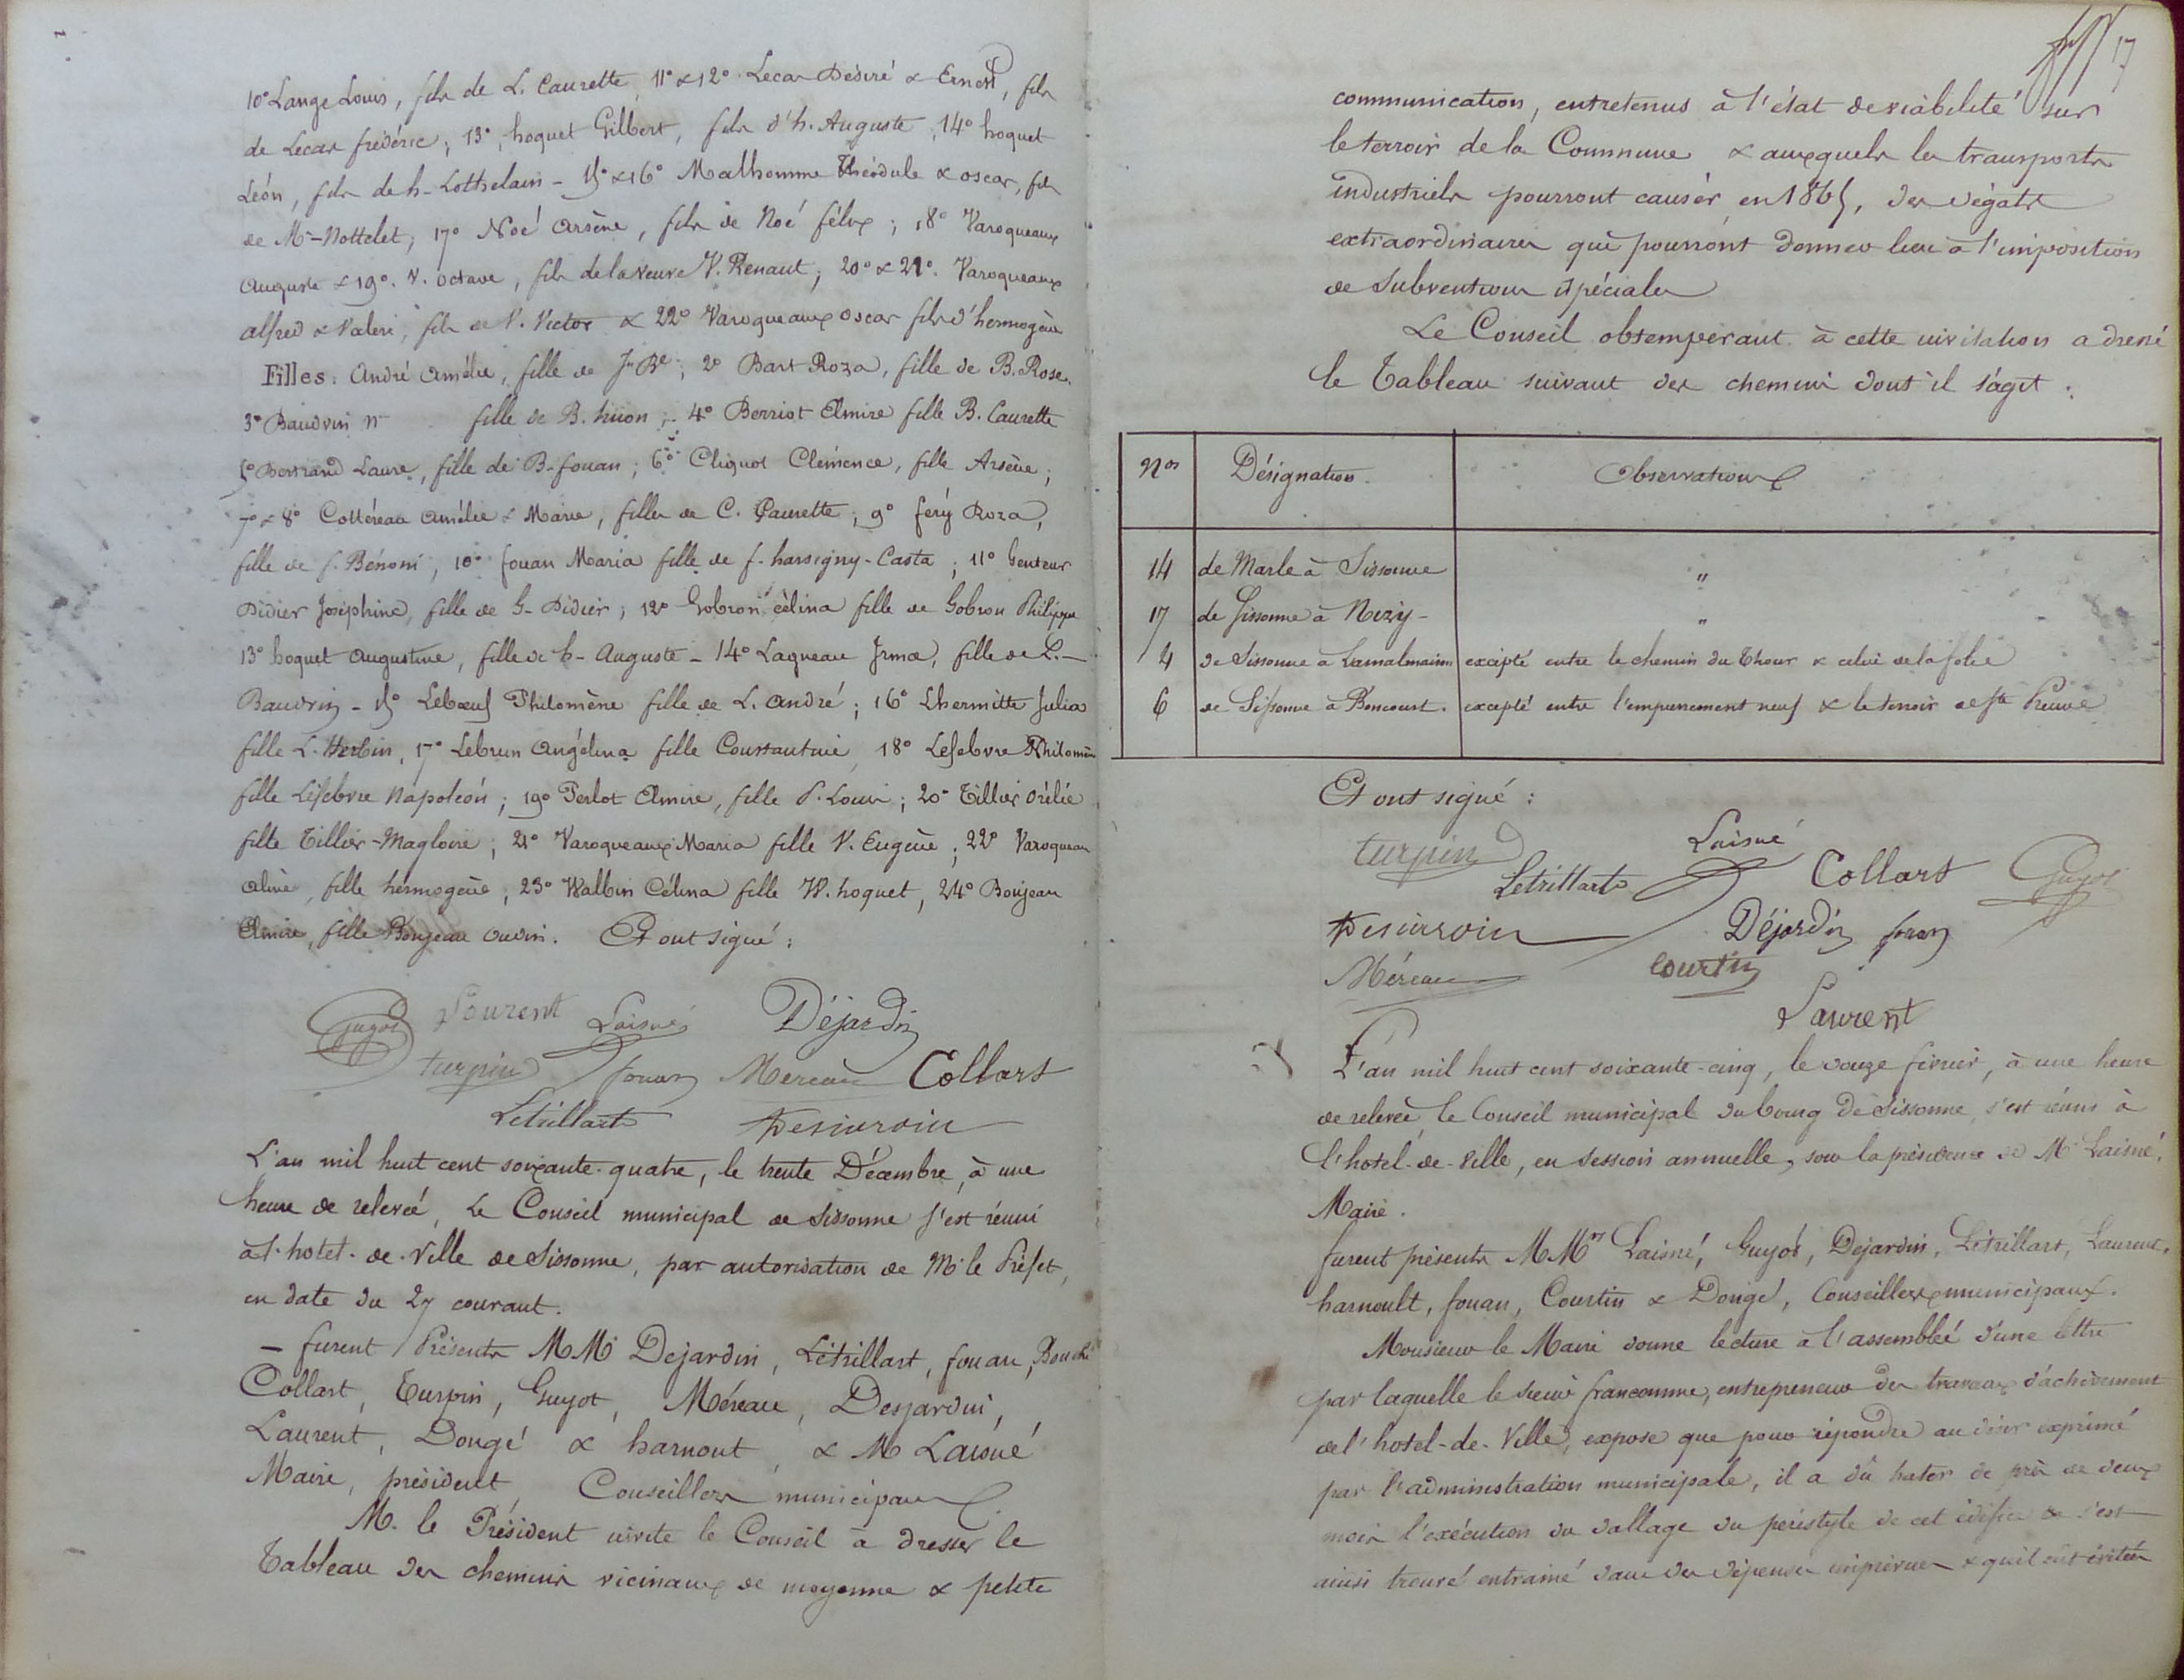 10° Lange Louis, fils de L. Caurette, 11° & 12° Lecar Désiré & Ernest, fils
de Lecar frédéric; 13°, hoquet Gilbert, fils d'h. Auguste; 14° hoquet
Léon, fils de h-Lothelain - 15° & 16° Malhomme Théodule & oscar, fils
de M-Nottelet; 17° Noé Arsène, fils de Noé félix; 18° Varoqueaux
Auguste & 19°. V. octave, fils de la veuve V. Renaut; 20° & 21°. Varoqueaux
alfred & Valeri, fils de V. Victor & 22° Varoqueaux oscar fils d'hermogène
Filles: André Amélie, fille de Jn Bte; 2° Bart Roza, fille de B. Rose.
3° Baudvin Nn fille de B. huon; 4° Berriot Elmire fille B. Caurette
5° Bertrand Laure, fille de B-fouan; 6° Cliquot Clémence, fille Arsène;
7° & 8° Cottéreau Amélie & Marie, filles de C. Caurette; 9° féry Roza,
fille de f. Bénoni, 10° fouan Maria fille de f. harsigny-Casta; 11° Genteur
Didier Joséphine, fille de G-Didier; 12° Gobron célina fille de Gobron Philippe
13° hoquet Augustine, fille de h-Auguste - 14° Laqneau Irma, fille de L.-
Baudvin - 15° Lebœuf Philomène fille de L. André; 16° Lhermitte Julia
fille L. Herbin, 17° Lebrun Angélina fille Constantine, 18° Lefebvre Philomène
fille Lefebvre Napoléon; 19° Perlot Elmire, fille P. Louis; 20° Tillier Orélie
fille Tillier-Magloire; 21° Varoqueaux Maria fille V. Eugène; 22° Varoqueau
aline, fille hermogène; 23° Walbin Célina fille W. hoquet, 24° Bonjean
Elmire, fille Bonjean Oudin. Et ont signé:
Guyot Laurent Laisné Déjardin
turpin fouan Mereau Collart
Letrillart Desjardin
L'an mil huit cent soixante-quatre, le trente Décembre, à une
heure de relevée, Le Conseil municipal de Sissonne s'est réuni
à l'hotel-de-Ville de Sissonne, par autorisation de Mr le Préfet,
en date du 27 courant.
- furent Présents MM Dejardin, Létrillart, fouan, Bouché
Collart, Turpin, Guyot, Méreau, Desjardin,
Laurent, Dongé & harnout, & M Laisné
Maire, président Conseillers municipaux.
M. le Président invite le Conseil à dresser le
Tableau des chemins vicinaux de moyenne & petite
17
communication, entretenus à l'état de viabilité sur
le terroir de la Commune & auxquels les transports
industriels pourront causer, en 1865, des dégats
extraordinaires qui pourront donner lieu à l'imposition
de Subventions spéciales
Le Conseil obtempérant à cette invitation a dressé
le Tableau suivant des chemins dont il s'agit:
Nos Désignation. Observations
14 de Marle à Sissonne "
17 de Sissonne à Nizy- "
4 de Sissonne à Lamalmaison excepté entre le chemin du Thour & celui de la folie
6 de Sissonne à Boncourt. excepté entre l'empierrement neuf & le terroir de Ste Preuve
Et ont signé:
turpin Laisné
Letrillart Collart Guyot
Desjardin Déjardin fouan
Méreau Courtin
Laurent
L'an mil huit cent soixante-cinq, le douze février, à une heure
de relevée, le Conseil municipal du bourg de Sissonne, s'est réuni à
l'hotel-de-Ville, en Session annuelle, sous la présidence de Mr Laisné,
Maire.
furent présents MMrs Laisné, Guyot, Dejardin, Létrillart, Laurent,
harnoult, fouan, Courtin & Dongé, Conseillers municipaux.
Monsieur le Maire donne lecture à l'assemblée d'une lettre
par laquelle le sieur francomme, entrepreneur des travaux d'achèvement
de l'hotel-de-Ville, expose que pour répondre au désir exprimé
par l'administration municipale, il a dû hater de près de deux
mois l'exécution du dallage du péristyle de cet édifice & s'est
ainsi trouvé entrainé dans des dépenses imprévues & qu'il eût évitées